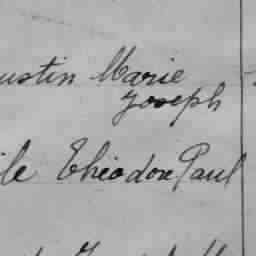 ustin Marie
Joseph
ile Théodore Paul